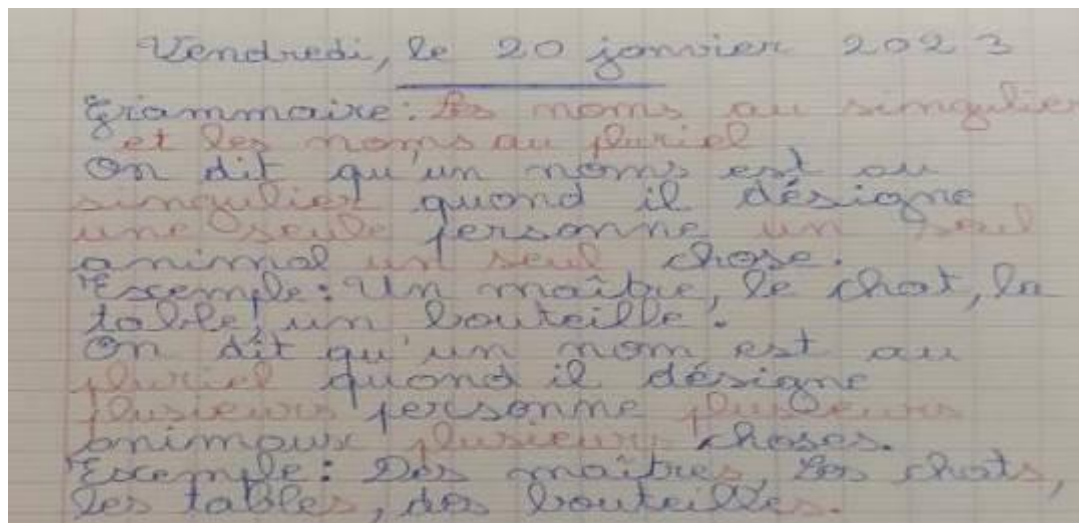 Vendredi, le 20 janvier 2023
Grammaire: Les noms au singulier
et les noms au pluriel
On dit qu'un noms est au
singulier quand il désigne
une seule personne un seul
animal un seul chose.
Exemple: Un maître, le chat, la
table, un bouteille.
On dit qu'un nom est au
pluriel quand il désigne
plusieurs personne plusieurs
animaux plusieurs choses.
Exemple: Des maîtres, Les chats,
les tables, des bouteilles.